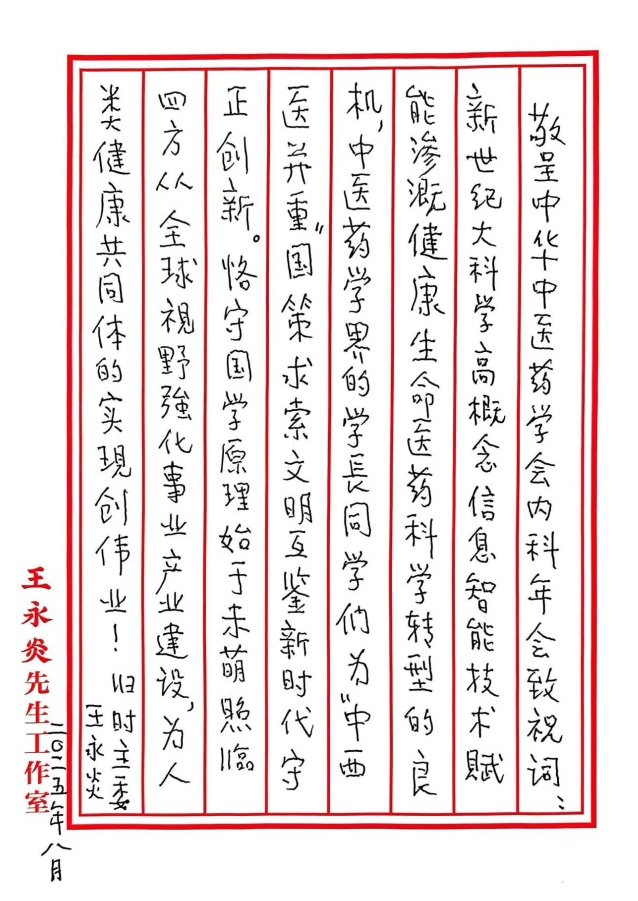 敬呈中华中医药学会内科年会致祝词：
新世纪大科学高概念信息智能技术赋
能渗溉健康生命医药科学转型的良
机，中医药学界的学長同学们为“中西
医并重”国策求索文明互鉴新时代守
正创新。恪守国学原理始于未萌照临
四方从全球视野強化事业产业建设，为人
类健康共同体的实現创伟业！
旧时主委
王永炎
二〇二五年八月
王永炎先生工作室